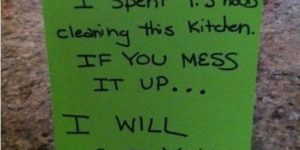 I SPENT 1.5 HOURS
cleaning this Kitchen.
IF YOU MESS
IT UP...
I WILL